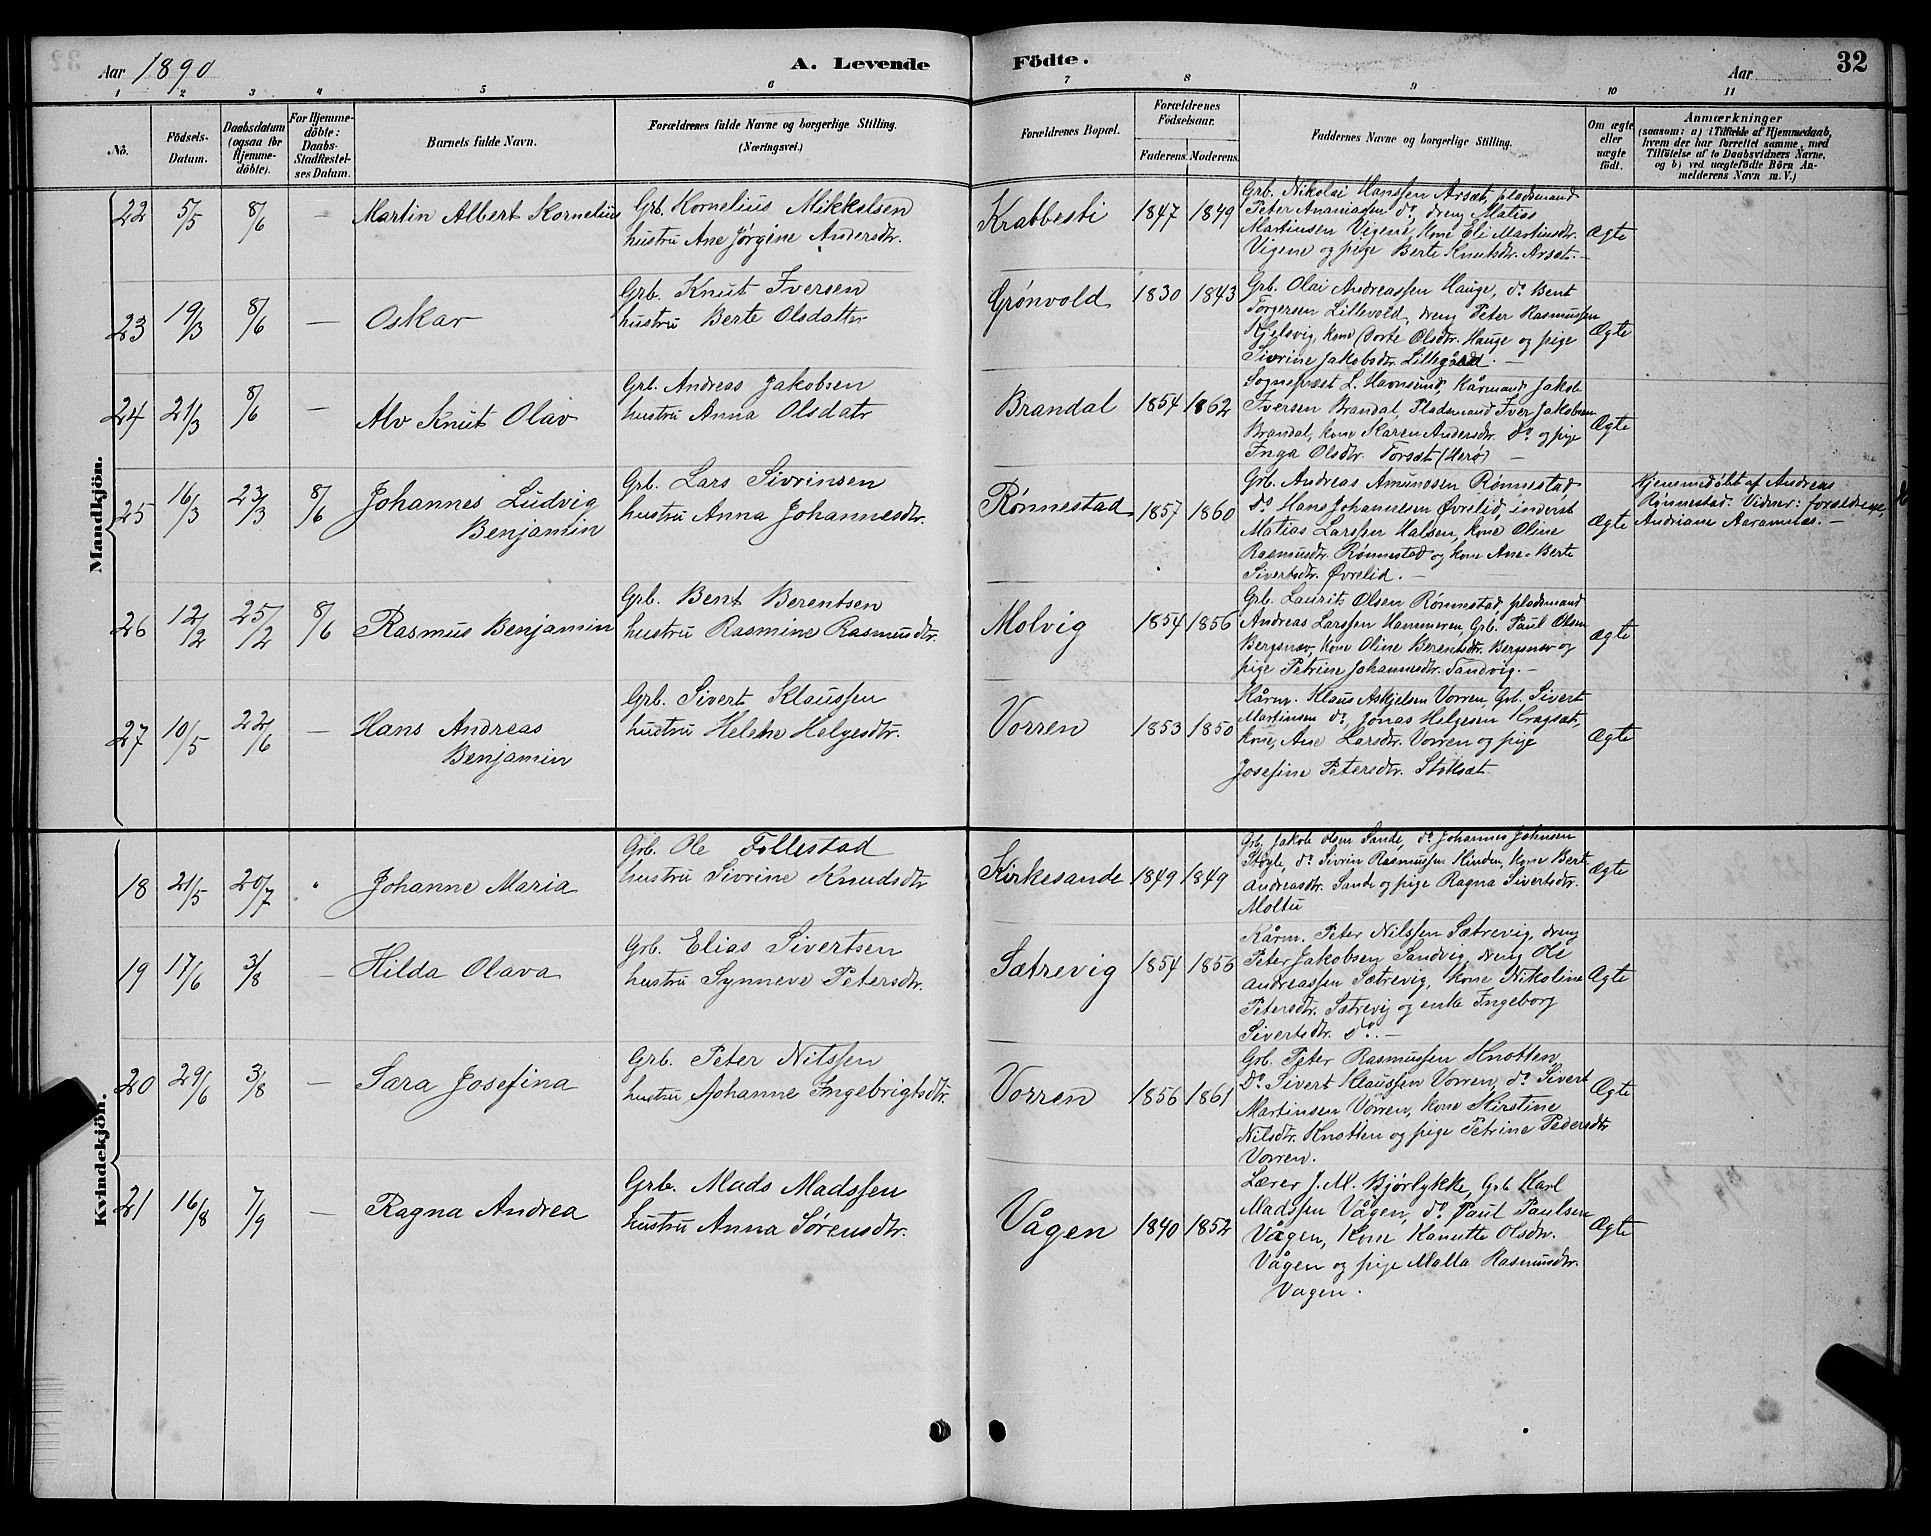 Aar 1890 A. Levende Födte. Aar 32
1 2 3 4 5 6 7 8 9 10 11
No.
Födsels-Datum.
Daabsdatum (ogsaa for Hjemme-döbte).
For Hjemme-döbte: Daabs-Stadfæstel-ses Datum.
Barnets fulde Navn.
Forældrenes fulde Navne og borgerlige Stilling.
(Næringsvei.)
Forældrenes Bopæl.
Forældrenes Födselsaar.
Faderens. Moderens.
Faddernes Navne og borgerlige Stilling.
Om ægte eller uægte født.
Anmærkninger
(saasom: a) i Tilfælde af Hjemmedaab,
hvem der har forrettet samme, med
Tilföielse af to Daabsvidners Navne,
og b) ved uægtefödte Börn An-
melderens Navn m. V.)
Mandkjön.
22 5/5 8/6 — Martin Albert Kornelius
Grb. Kornelius Mikkelsen
hustru Ane Jørgine Andersdtr.
Krabbesti 1847 1849
Grb. Nikolai Hanssen Arsæt, pladsmand
Peter Ananiassen do, dreng Matias
Martinsen Vigene, kone Eli Martinsdtr.
Vigene og pige Berte Knutsdtr. Arsæt. —
Ægte
23 19/3 8/6 — Oskar
Grb. Knut Iversen
hustru Berte Olsdatter
Grønvold 1830 1843
Grb. Olai Andreassen Hauge, do Bent
Torgersen Lillevold, dreng Peter Rasmussen
Kjelsvig, kone Dorte Olsdtr. Hauge og pige
Sivrine Jakobsdtr. Lillegård. —
Ægte
24 21/3 8/6 — Alv Knut Olav
Grb. Andreas Jakobsen
hustru Anna Olsdatr
Brandal 1854 1862
Sognepræst L. Havnsund, kårmand Jakob
Iversen Brandal, Pladsmand Iver Jakobsen
Brandal, kone Karen Andersdtr. do og pige
Inga Olsdtr. Torsæt (Herø) —
Ægte
25 16/3 23/3 8/6 Johannes Ludvig
Benjamin
Grb. Lars Sivrinsen
hustru Anna Johannesdtr.
Rønnestad 1857 1860
Grb. Andreas Amundsen Rønnestad,
do Hans Johannesen Øvrelid, inderst
Matias Larssen Halsen, kone Oline
Rasmusdtr. Rønnestad og kone Ane-Berte
Sivertsdtr. Øvrelid. —
Ægte
Hjemmedöbt af Andreas
Rønnestad. Vidner: forældrene,
Andriane Aaramnæs. —
26 12/2 25/2 8/6 Rasmus Benjamin
Grb. Bent Berentsen
hustru Rasmine Rasmusdtr.
Molvig 1854 1856
Grb. Laurits Olsen Rønnestad, pladsmand
Andreas Larssen Hammeren, Grb. Paul Olsen
Bergsnev, kone Oline Berentsdtr. Bergsnev og
pige Petrine Johannesdtr. Sandvig. —
Ægte
27 10/5 22/6 — Hans Andreas
Benjamin
Grb. Sivert Klaussen
hustru Helene Helgesdtr.
Vorren 1853 1850
Kårm. Klaus Askjelsen Vorren, Grb. Sivert
Martinsen do, Jonas Helgesen Kragsæt,
kone, Ane Larsdtr. Vorren og pige
Josefine Petersdtr. Stoksæt.
Ægte
Kvindekjön.
18 21/5 20/7 Johanne Maria
Grb. Ole Follestad
hustru Sivrine Knudsdtr
Kirkesande 1849 1849
Grb. Jakob Olsen Sande, do Johannes Johnsen
Støyle, do Sivrin Rasmussen Kinden, kone Bert.
Andreasdtr. Sande og pige Ragna Sivertsdtr.
Moltu
Ægte
19 17/6 3/8 — Hilda Olava
Grb. Elias Sivertsen
hustru Synneve Petersdtr.
Sætrevig 1854 1856
Kårm. Peter Nilssen Sætrevig, dreng
Peter Jakobsen Sandvig, dreng Ole
Andreassen Sætrevig, kone Nikoline
Petersdtr. Sætrevig og enke Ingeborg
Sivertsdtr. do —
Ægte
20 29/6 3/8 — Sara Josefina
Grb. Peter Nilssen
hustru Johanne Ingebrigtsdtr.
Vorren 1856 1861
Grb. Peter Rasmussen Knotten
Do Sivert Klaussen Vorren, do Sivert
Martinsen Vorren, kone Kirstine
Nilsdtr. Knotten og pige Petrine Pedersdtr
Vorren.
Ægte
21 16/8 7/9 — Ragna Andrea
Grb. Mads Madssen
hustru Anna Sørensdtr.
Vågen 1840 1852
Lærer J. M. Bjørlykke, Grb. Karl
Madssen Vågen, do Paul Paulsen
Vågen, kone Kanutte Olsdtr.
Vågen og pige Malla Rasmusdtr.
Vagen.
Ægte